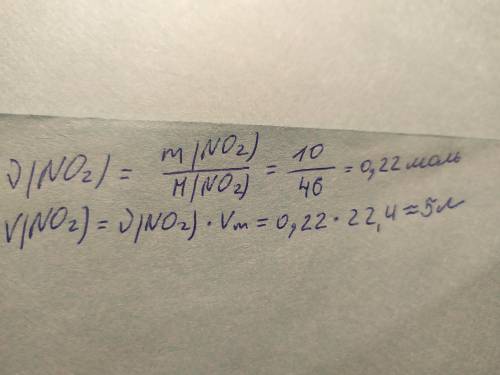 ν(NO₂) = m(NO₂)/M(NO₂) = 10/46 = 0,22 моль
V(NO₂) = ν(NO₂) · Vm = 0,22 · 22,4 ≈ 5л